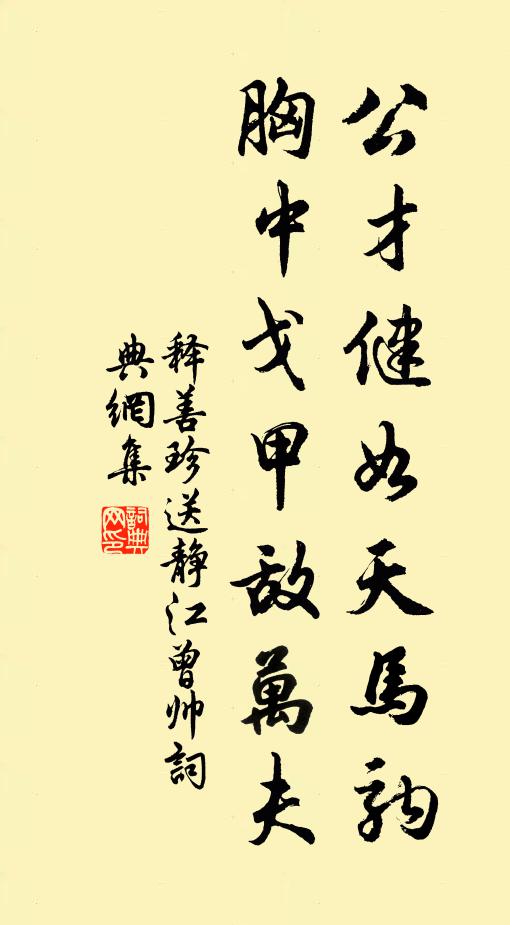 公才健如天馬駒
胸中戈甲敌萬夫
释善珍送静江曾帅詞
典網集
詞典
网印